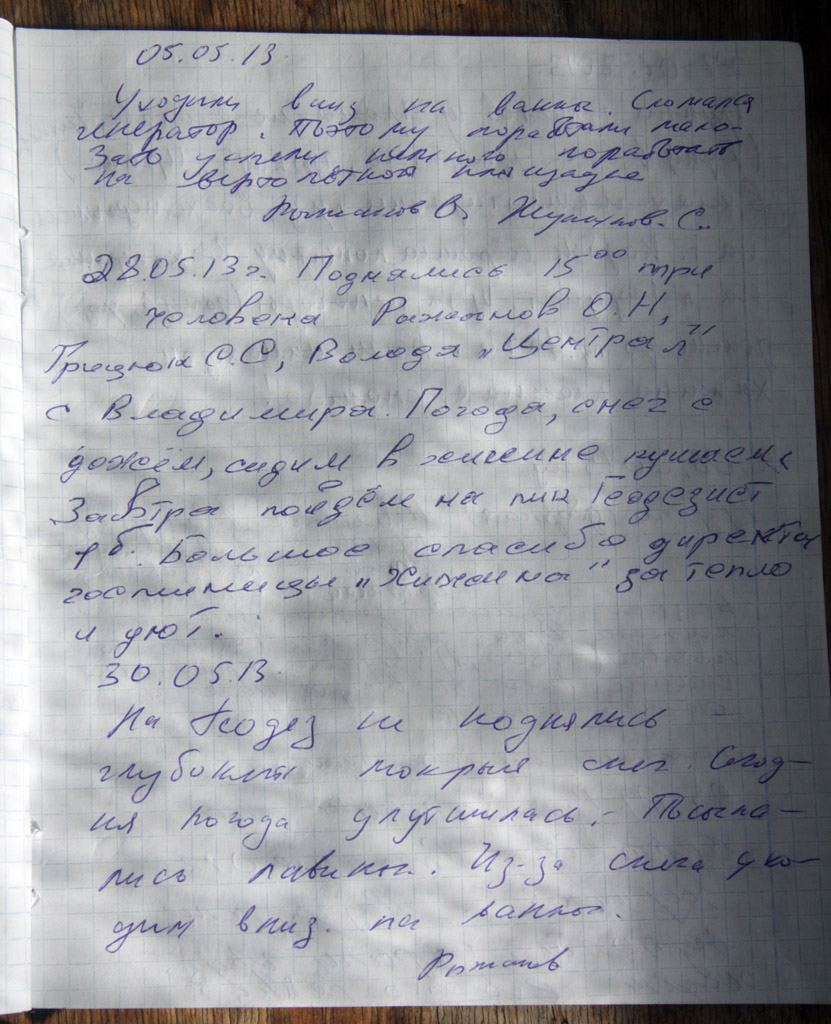 05.05.13.
Уходим вниз на ванны. Сломался
генератор. Поэтому поработали мало.
Зато успели немного поработать
на вертолётной площадке
Рыжанов В.
28.05.13 г. Поднялись 15⁰⁰ три
человека О.Н,
Грицюк С.С, Володя „Централ"
с Владимира. Погода, снег с
дожём, сидим в хижине кушаем.
Завтра пойдём на пик Геодезист
1б. Большое спасибо директа
гостиницы „Хижина" за тепло
и уют.
30.05.13
На Геодез не поднялись
глубокий мокрый снег. Сегод-
ня погода улутшилась. Посыпа-
лись лавины. Из-за снега ухо-
дим вниз. на ванны.
Рыжанов